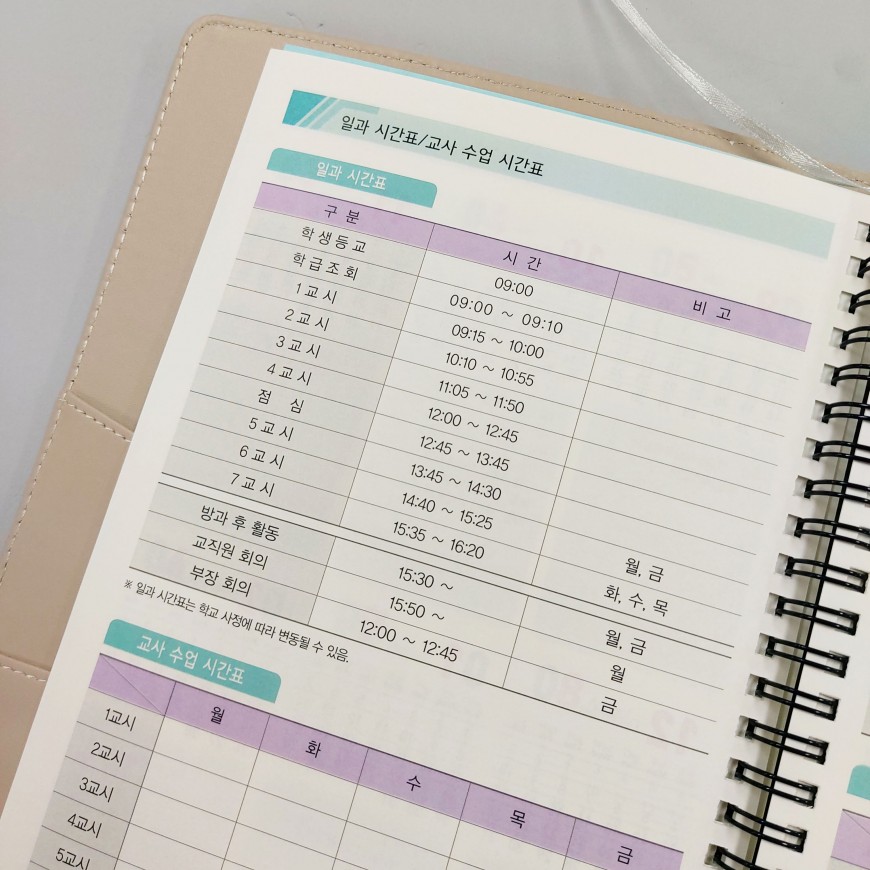 일과 시간표/교사 수업 시간표
일과 시간표
구 분 시 간 비 고
학생등교 09:00
학급조회 09:00 ~ 09:10
1교시 09:15 ~ 10:00
2교시 10:10 ~ 10:55
3교시 11:05 ~ 11:50
4교시 12:00 ~ 12:45
점 심 12:45 ~ 13:45
5교시 13:45 ~ 14:30
6교시 14:40 ~ 15:25 월, 금
7교시 15:35 ~ 16:20 화, 수, 목
방과 후 활동 15:30 ~ 월, 금
교직원 회의 15:50 ~ 월
부장 회의 12:00 ~ 12:45 금
※ 일과 시간표는 학교 사정에 따라 변동될 수 있음.
교사 수업 시간표
월 화 수 목 금
1교시
2교시
3교시
4교시
5교시